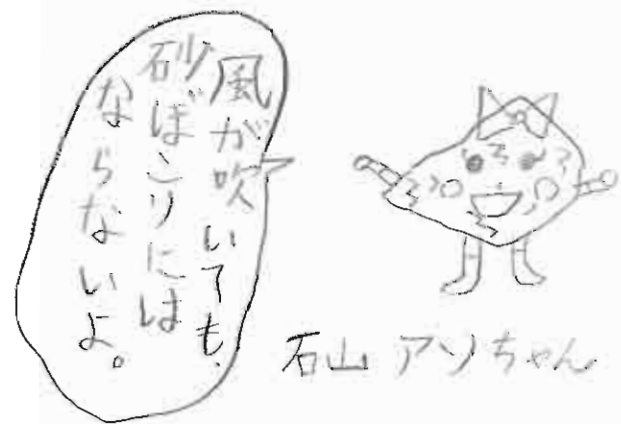 風が吹いても、
砂ぼこりには
ならないよ。
石山 アソちゃん